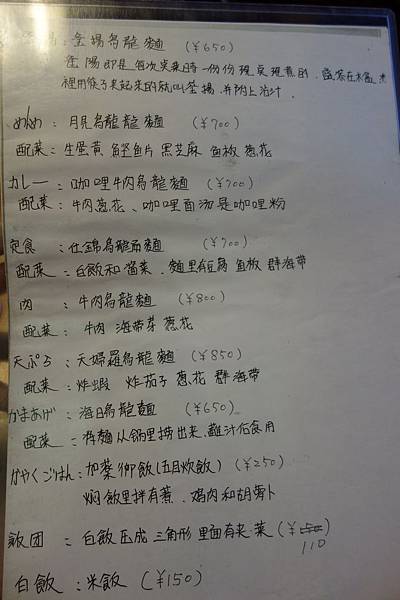 揚：釜揚烏龍麵 （¥650）
釜揚即是每次买来时一份份现点现煮的．盛茶在木盆
裡用筷子夹起来的就叫釜揚．并附上沾汁．
めんめ：月見烏龍麵 （¥700）
配菜：生蛋黄 鲣鱼片 黑芝麻 鱼板 葱花
カレー：咖哩牛肉烏龍麵 （¥700）
配菜：牛肉葱花、咖哩面汤是咖哩粉
定食：什錦烏龍麵 （¥900）
配菜：白飯和酱菜．麵里有豆腐 鱼板 群海带
肉：牛肉烏龍麵 （¥800）
配菜：牛肉 海带芽 葱花
天ぷら：天婦羅烏龍麵（¥850）
配菜：炸蝦 炸茄子 葱花 群海带
かまあげ：烏龍麵 （¥650）
配菜：将麵从锅里捞出来．蘸汁佐食用
かやくごはん：加藥御飯（五目炊飯）（¥250）
焖飯里拌有蔥．鸡肉和胡萝卜
飯团：白飯压成三角形里面有夹菜（¥
110
白飯：米飯（¥150）